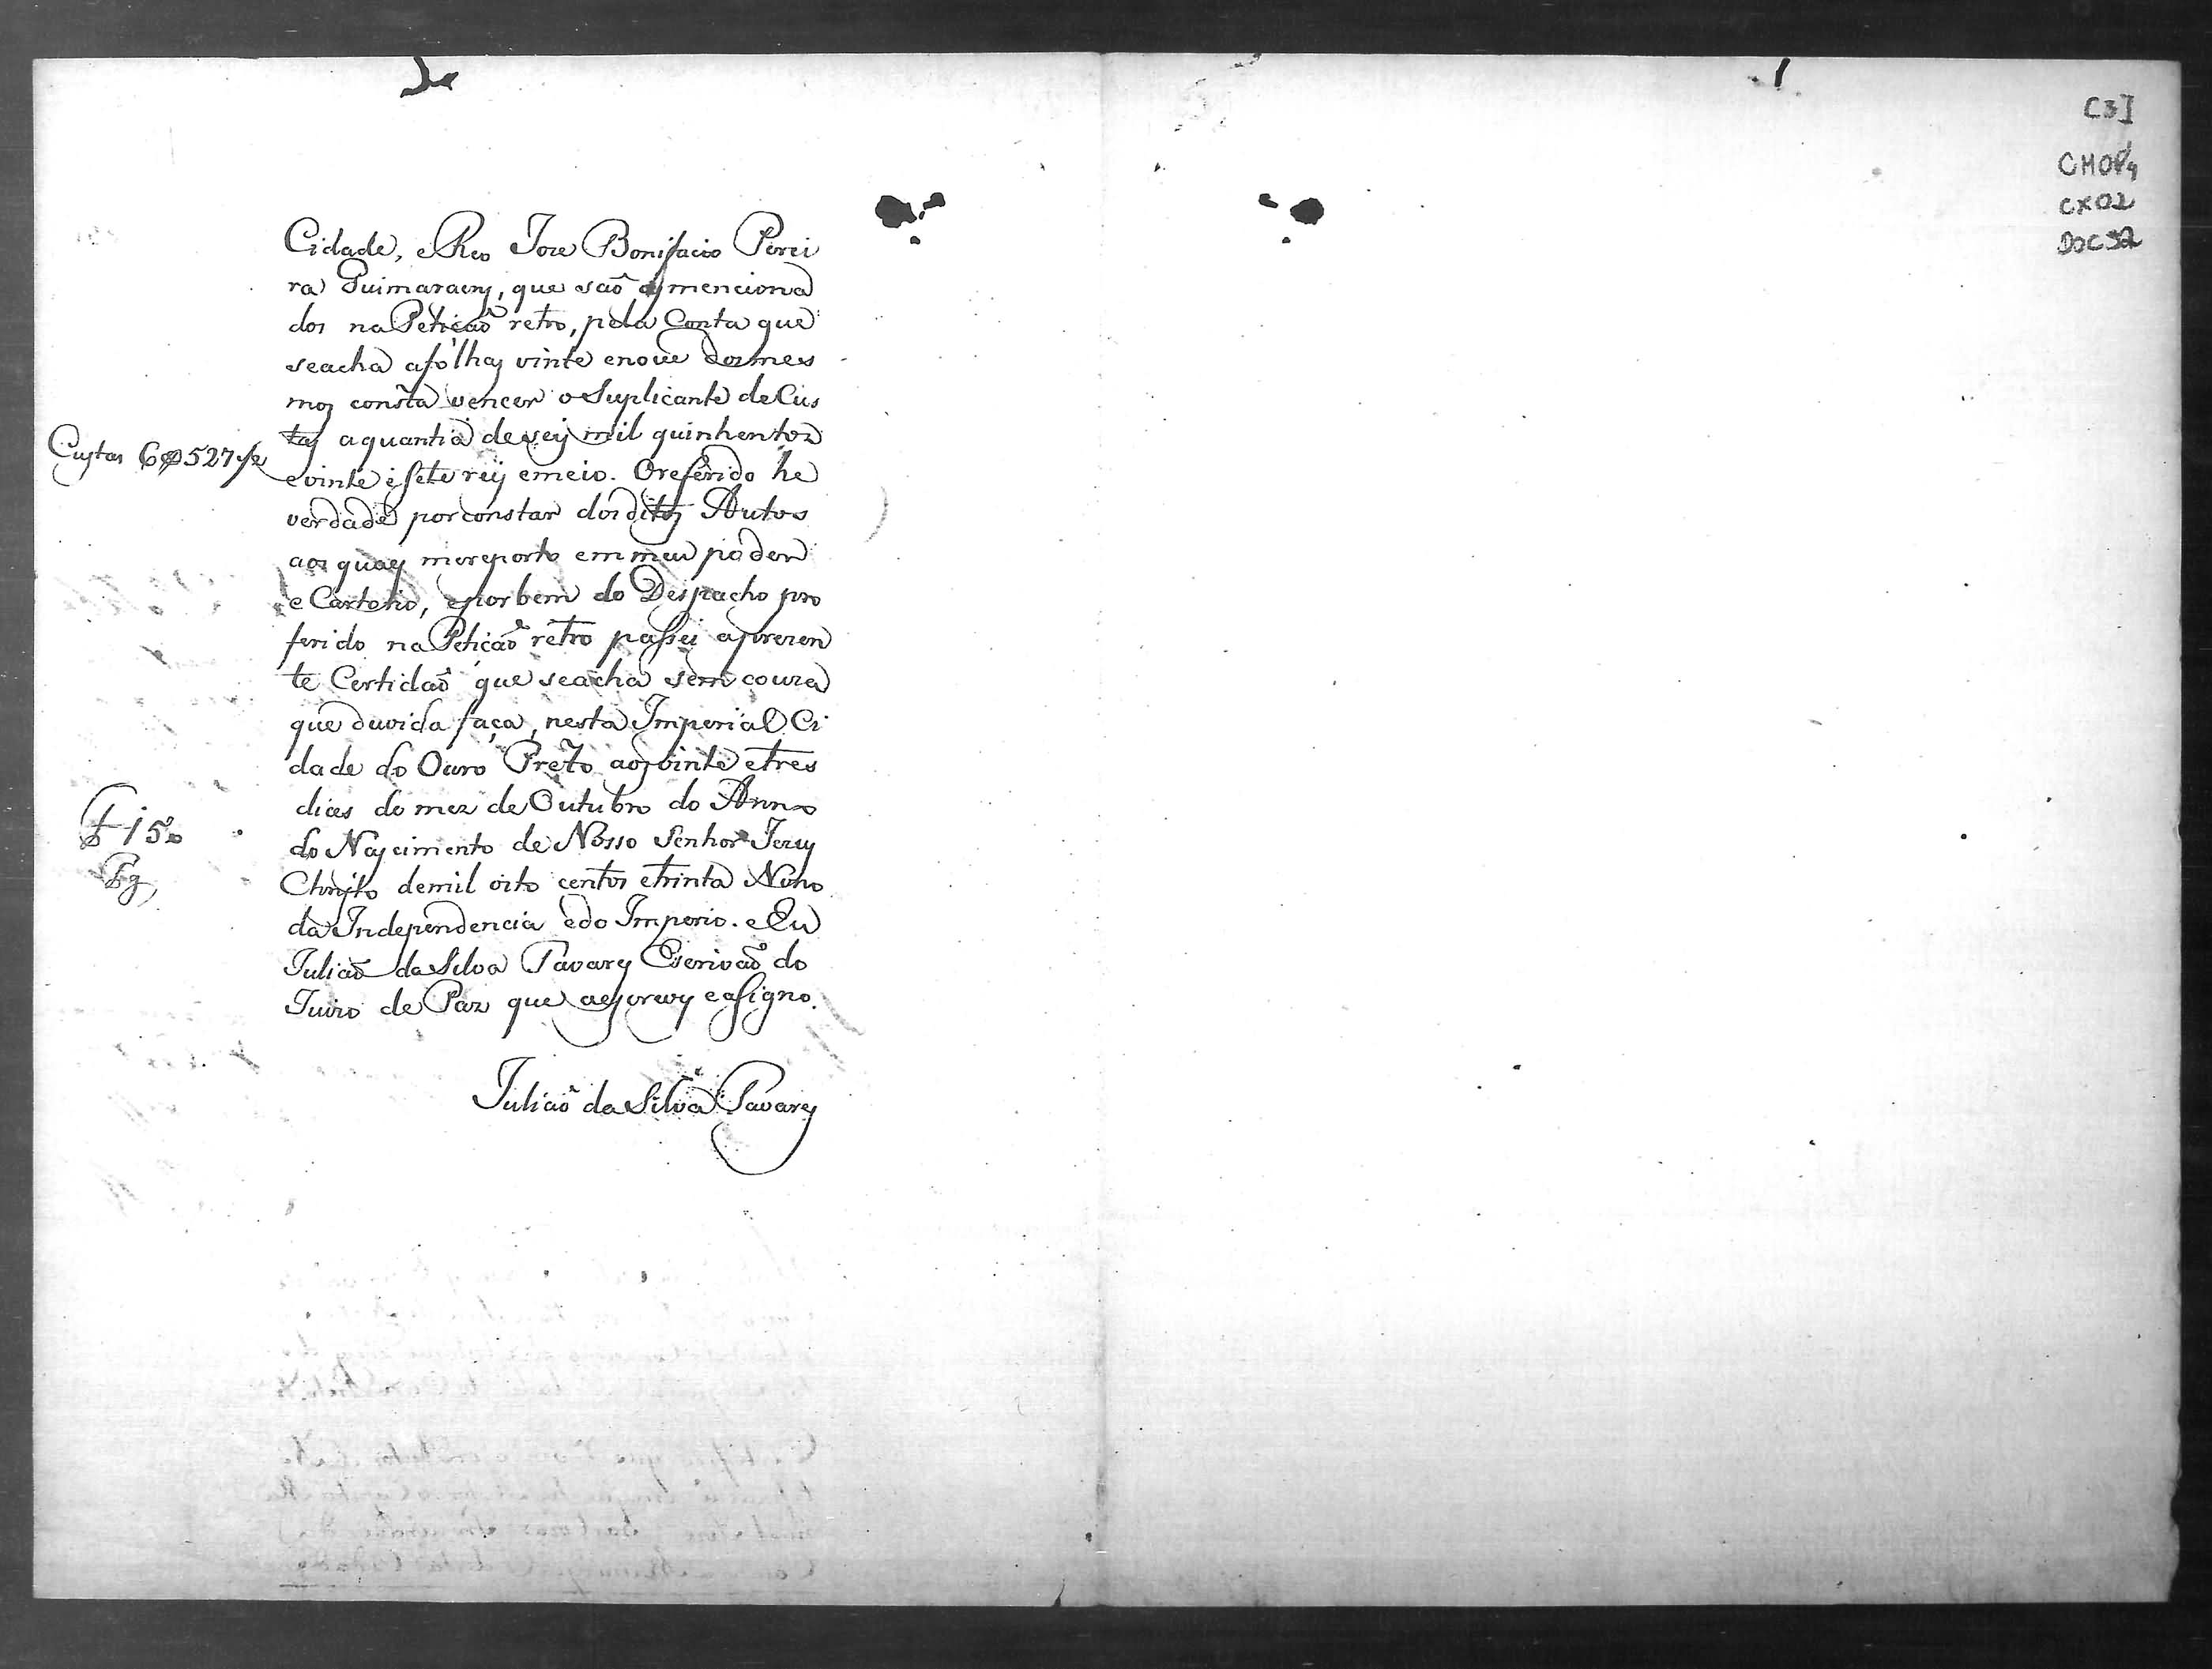 Cidade, e Reo Joze Bonifacio Perei
ra Guimaraens, que saõ os menciona
dos na Petiçaõ retro, pela Conta que
seacha afolhas vinte enove dosmes
mos consta vencer o Suplicante de Cus
tas aquantia deseis mil quinhentos
Custas 6$527 1/2
evinte e sete reis emeio. Oreferido he
verdade por constar dos ditos Autos
aos quaes mereporto em meu poder
e Cartorio, epor bem do Despacho pro
ferido na Petiçaõ retro passei aprezen
te Certidaõ que seacha sem couza
que duvida faça, nesta Imperial Ci
dade do Ouro Preto aos vinte etres
dias do mez de Outubro do Anno
150
do Nascimento de Nosso Senhor Jezus
Pg
Christo demil oito centos etrinta Nono
da Independencia edo Imperio. eEu
Juliaõ da Silva Tavares Escrivaõ do
Juizo de Paz que aescrevy easigno.
Juliaõ da Silva Tavares
C3J
CMOP
CX02
DOC 52